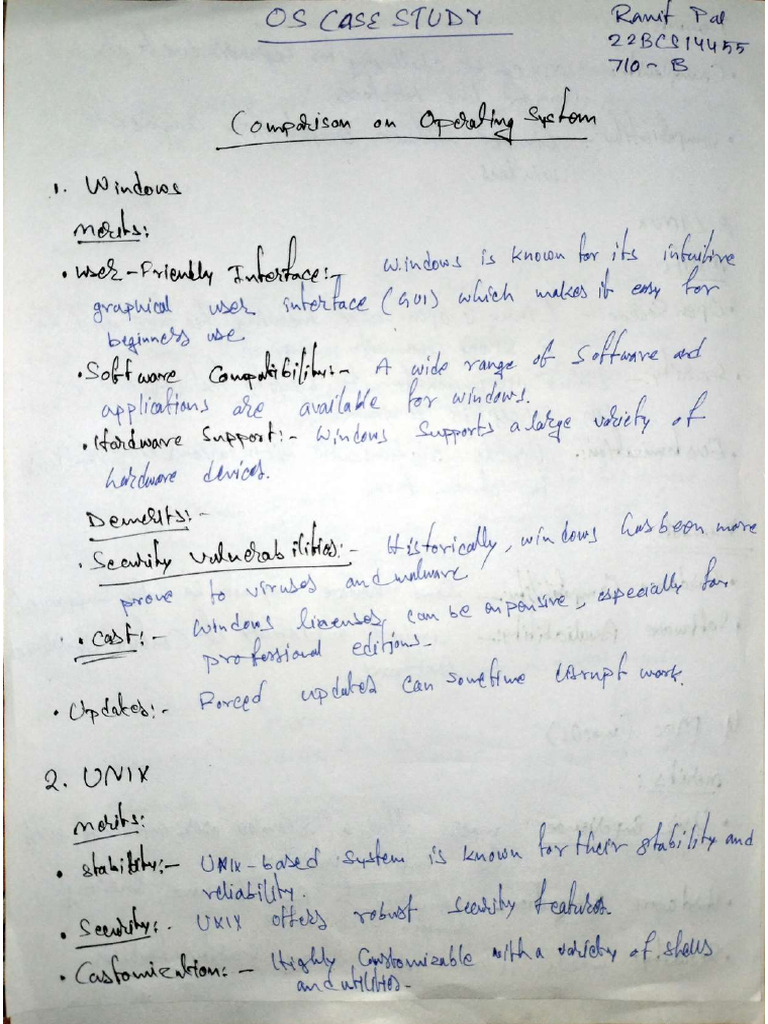 OS CASE STUDY
Ranit Pal
22BCS14455
710-B
Comparison on Operating System
1. Windows
Merits:
• User-Friendly Interface:- Windows is known for its intuitive
graphical user interface (GUI) which makes it easy for
beginners use
• Software Compatibility:- A wide range of software and
applications are available for windows.
• Hardware Support:- Windows supports a large variety of
hardware devices.
Demerits:-
• Security Vulnerabilities:- Historically, windows has been more
prove to viruses and malware
• Cost:- Windows licenses can be expensive, especially for
professional editions-
• Updates:- Forced updates can sometime disrupt work.
2. UNIX
Merits:
• Stability:- UNIX-based system is known for their stability and
reliability.
• Security:- UNIX offers robust security features.
• Castomization:- Highly Customizable with a variety of shells
and utilities-